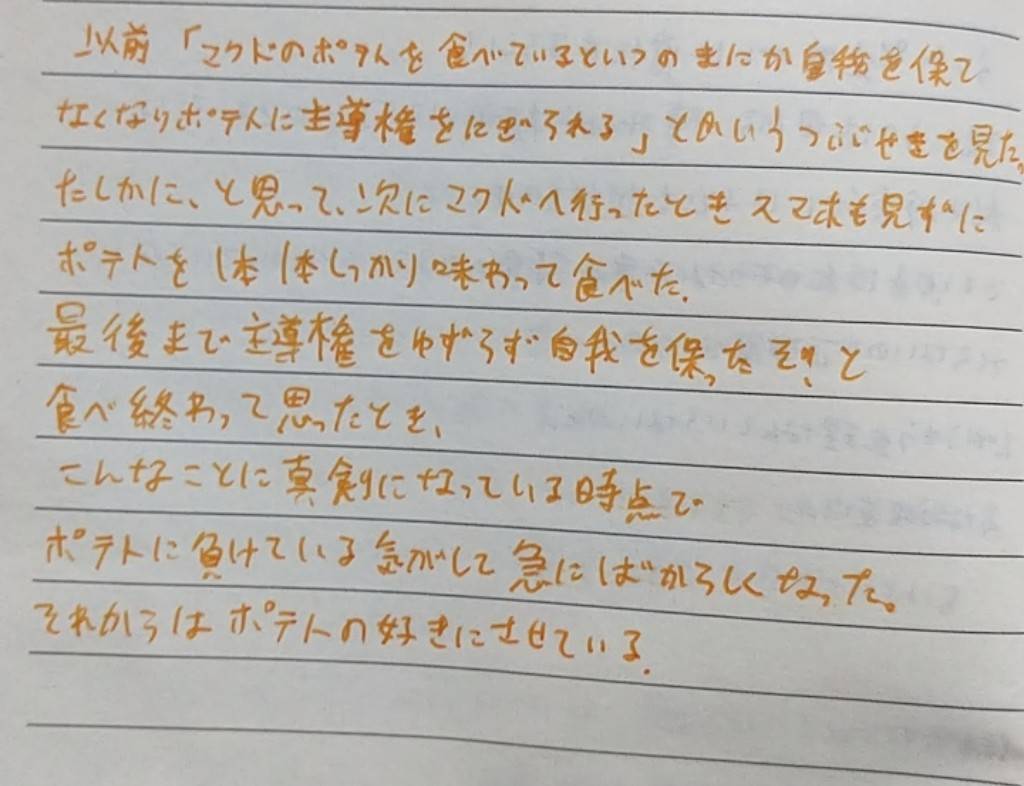 以前「マクドのポテトを食べているといつのまにか自我を保て
なくなりポテトに主導権をにぎられる」とのいうつぶやきを見た。
たしかに、と思って、次にマクドへ行ったときスマホも見ずに
ポテトを1本1本しっかり味わって食べた。
最後まで主導権をゆずらず自我を保ったぞ!と
食べ終わって思ったとき、
こんなことに真剣になっている時点で
ポテトに負けている気がして急にばからしくなった。
それからはポテトの好きにさせている。